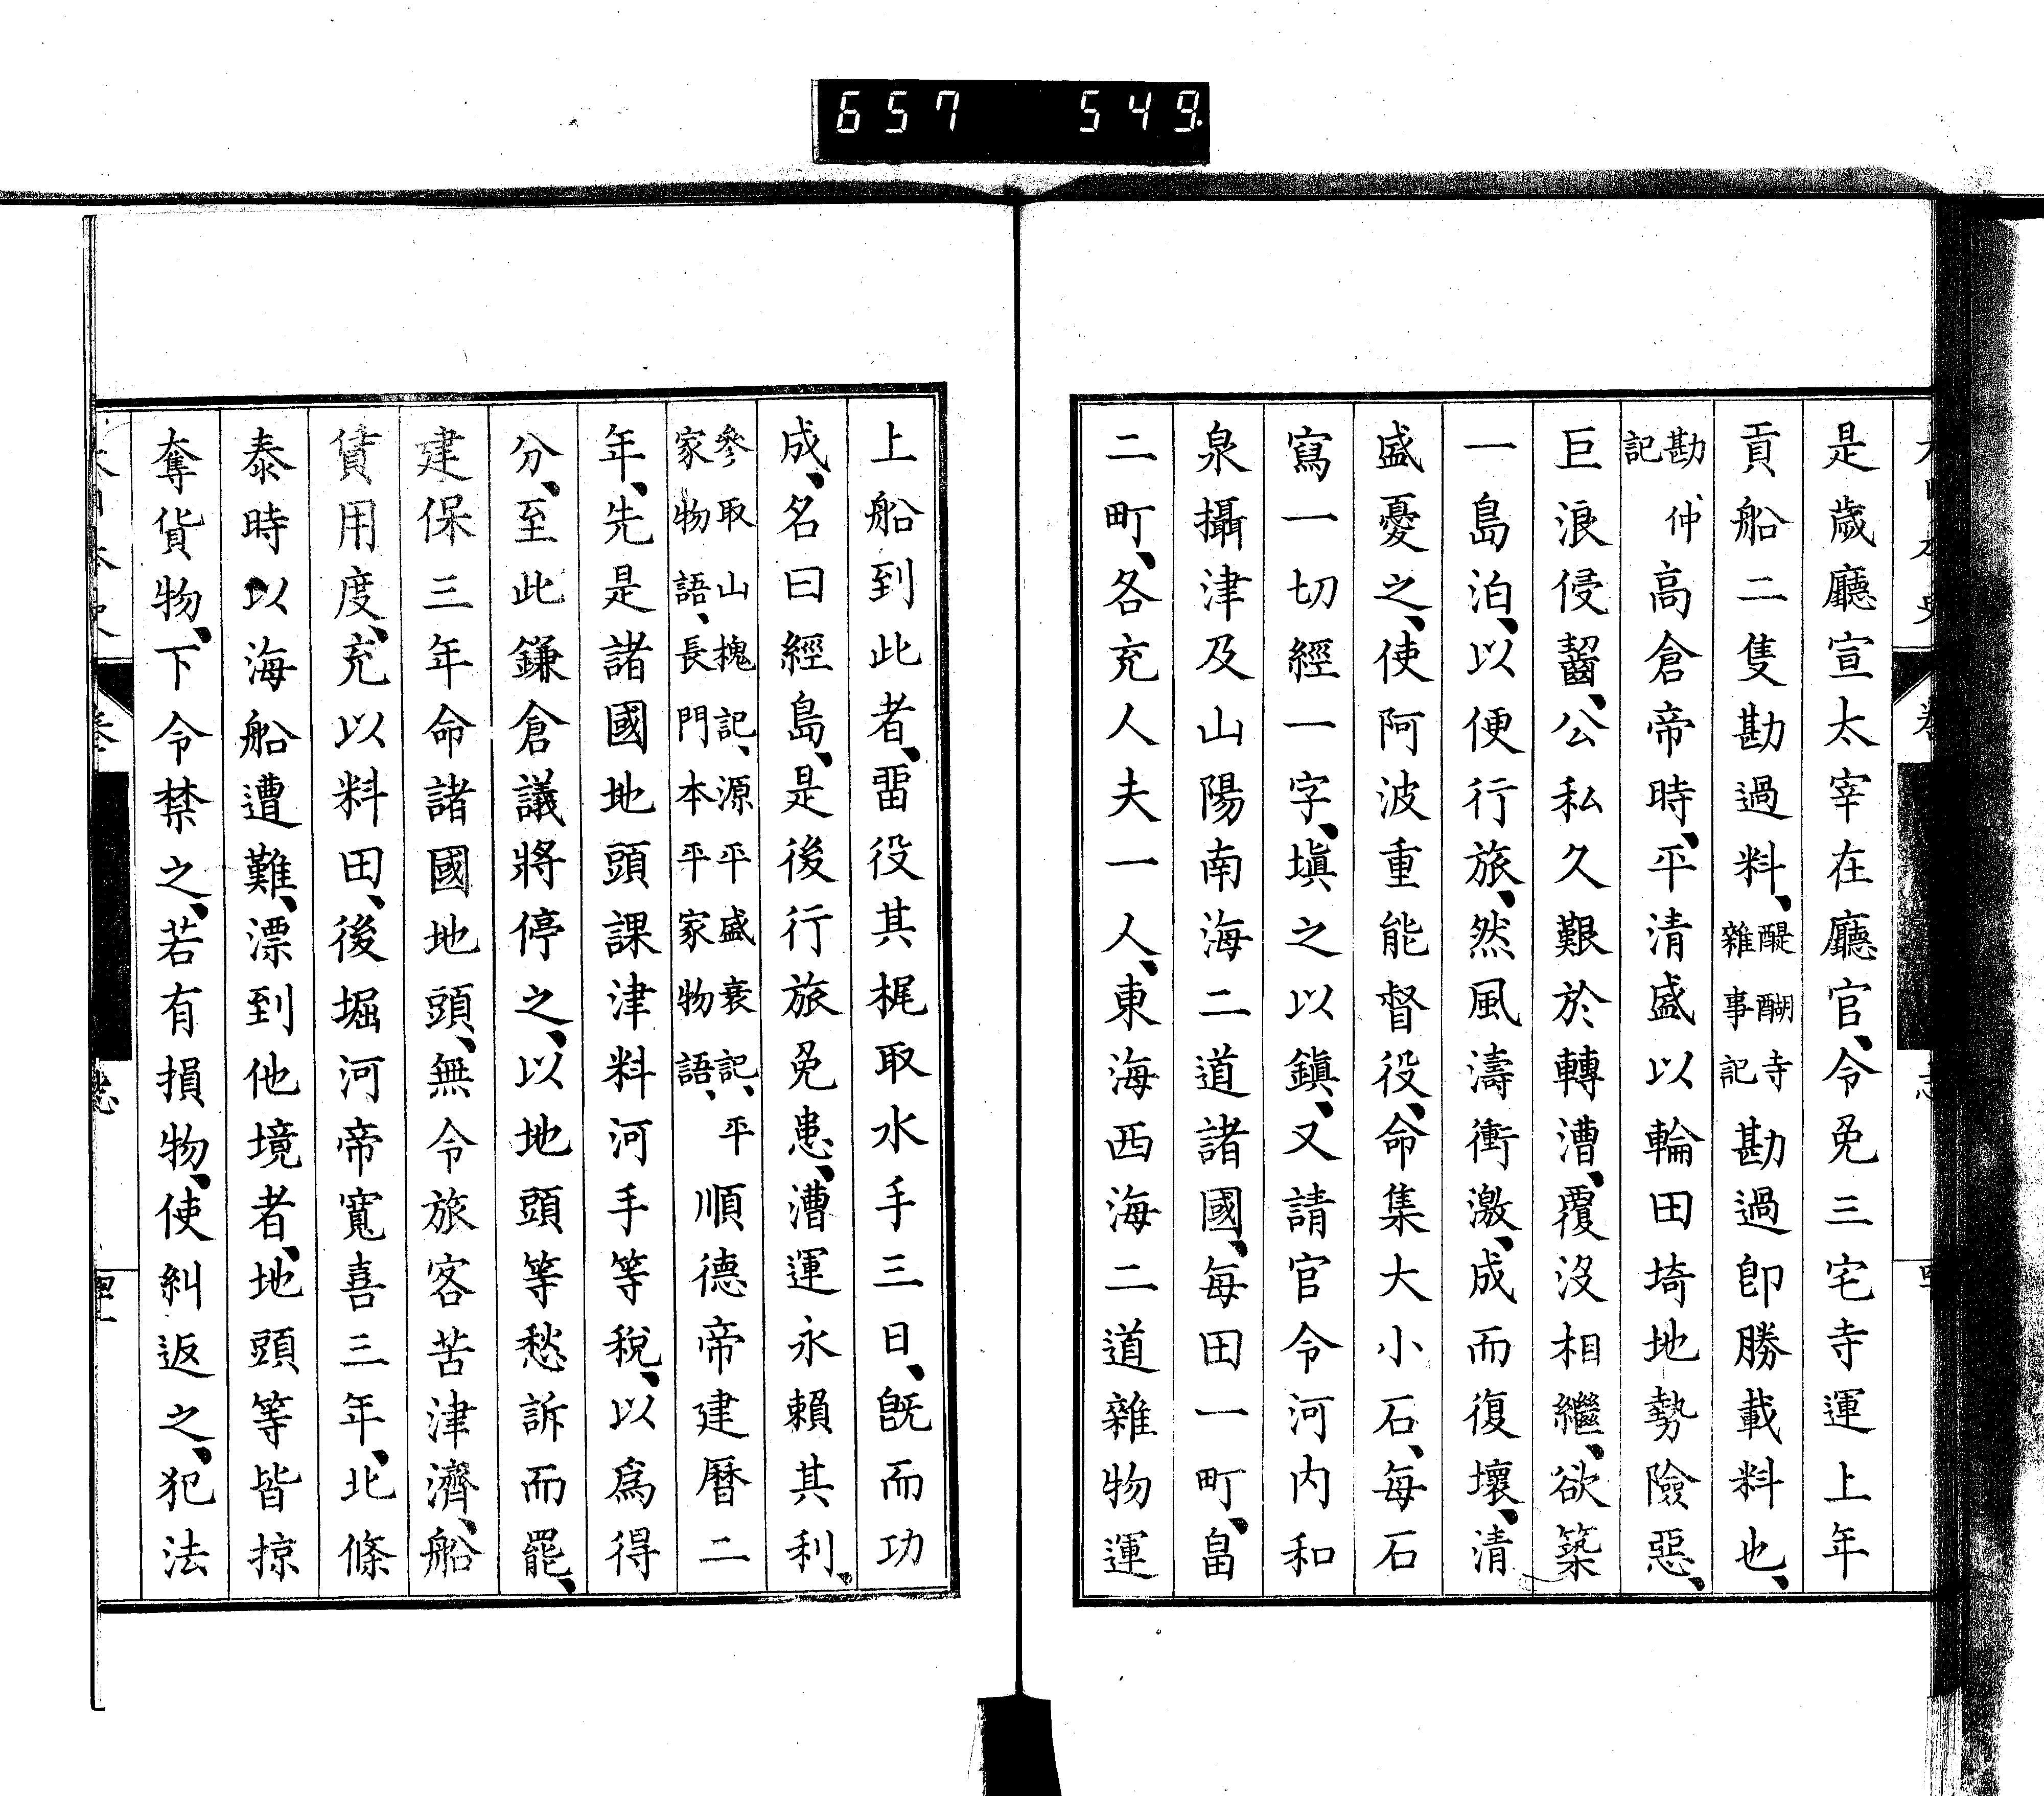 657 549
是歲廳宣太宰在廳官、令免三宅寺運上年
貢船二隻勘過料、醍醐寺雜事記勘過卽勝載料也、
勘仲記、高倉帝時、平清盛以輪田埼地勢險惡、
巨浪侵齧、公私久艱於轉漕、覆沒相繼、欲築
一島泊、以便行旅、然風濤衝激、成而復壞、清
盛憂之、使阿波重能督役、命集大小石、每石
寫一切經一字、塡之以鎭、又請官令河内和
泉攝津及山陽南海二道諸國、每田一町、畠
二町、各充人夫一人、東海西海二道雜物運
上船到此者、畱役其梶取水手三日、旣而功
成、名曰經島、是後行旅免患、漕運永賴其利、
參取山槐記、源平盛衰記、平家物語、長門本平家物語、順德帝建曆二
年、先是諸國地頭課津料河手等稅、以爲得
分、至此鎌倉議將停之、以地頭等愁訴而罷、
建保三年命諸國地頭、無令旅客苦津濟、船
賃用度、充以料田、後堀河帝寬喜三年、北條
泰時以海船遭難、漂到他境者、地頭等皆掠
奪貨物、下令禁之、若有損物、使糾返之、犯法